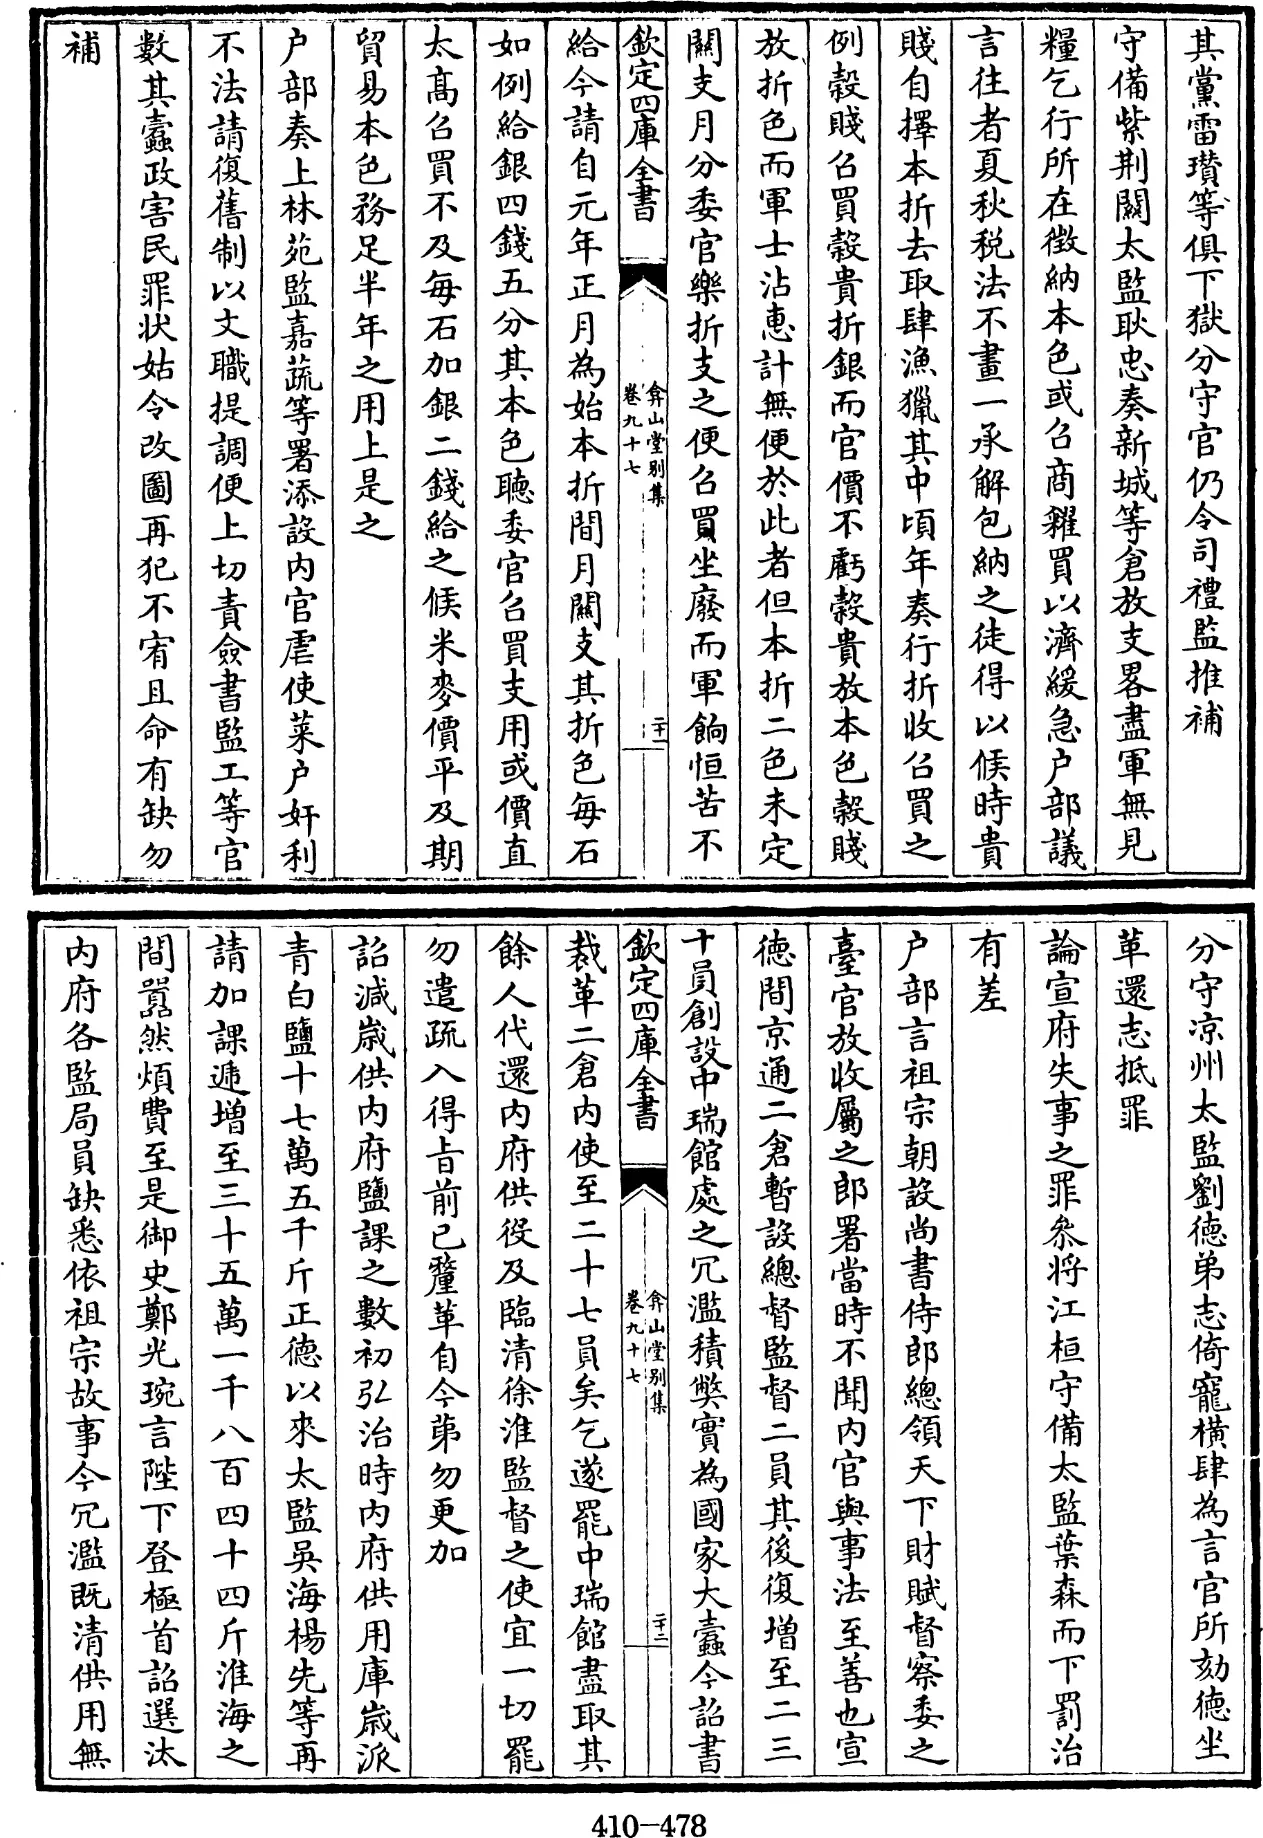 其黨雷瓚等俱下獄分守官仍令司禮監推補
守備紫荆關太監耿忠奏新城等倉放支畧盡軍無見
糧乞行所在徵納本色或召商糴買以濟緩急户部議
言往者夏秋税法不畫一承解包納之徒得以候時貴
賤自擇本折去取肆漁獵其中頃年奏行折收召買之
例穀賤召買穀貴折銀而官價不虧穀貴放本色穀賤
放折色而軍士沾惠計無便於此者但本折二色未定
關支月分委官樂折支之便召買坐廢而軍餉恒苦不
欽定四庫全書
弇山堂别集
卷九十七
二十一
給今請自元年正月為始本折間月關支其折色每石
如例給銀四錢五分其本色聽委官召買支用或價直
太高召買不及每石加銀二錢給之候米麥價平及期
貿易本色務足半年之用上是之
户部奏上林苑監嘉蔬等署添設内官虐使菜户奸利
不法請復舊制以文職提調便上切責僉書監工等官
數其蠹政害民罪狀姑令改圖再犯不宥且命有缺勿
補
分守凉州太監劉德弟志倚寵横肆為言官所劾德坐
革還志抵罪
論宣府失事之罪叅將江桓守備太監葉森而下罰治
有差
户部言祖宗朝設尚書侍郎總領天下財賦督察委之
臺官放收屬之郎署當時不聞内官與事法至善也宣
德間京通二倉暫設總督監督二員其後復增至二三
十員創設中瑞館處之冗濫積弊實為國家大蠹今詔書
欽定四庫全書
弇山堂别集
卷九十七
二十二
裁革二倉内使至二十七員矣乞遂罷中瑞館盡取其
餘人代還内府供役及臨清徐淮監督之使宜一切罷
勿遣疏入得旨前已釐革自今弟勿更加
詔減歲供内府鹽課之數初弘治時内府供用庫歲派
青白鹽十七萬五千斤正德以來太監吳海楊先等再
請加課遞增至三十五萬一千八百四十四斤淮海之
間囂然煩費至是御史鄭光琬言陛下登極首詔選汰
内府各監局員缺悉依祖宗故事今冗濫既清供用無
410-478